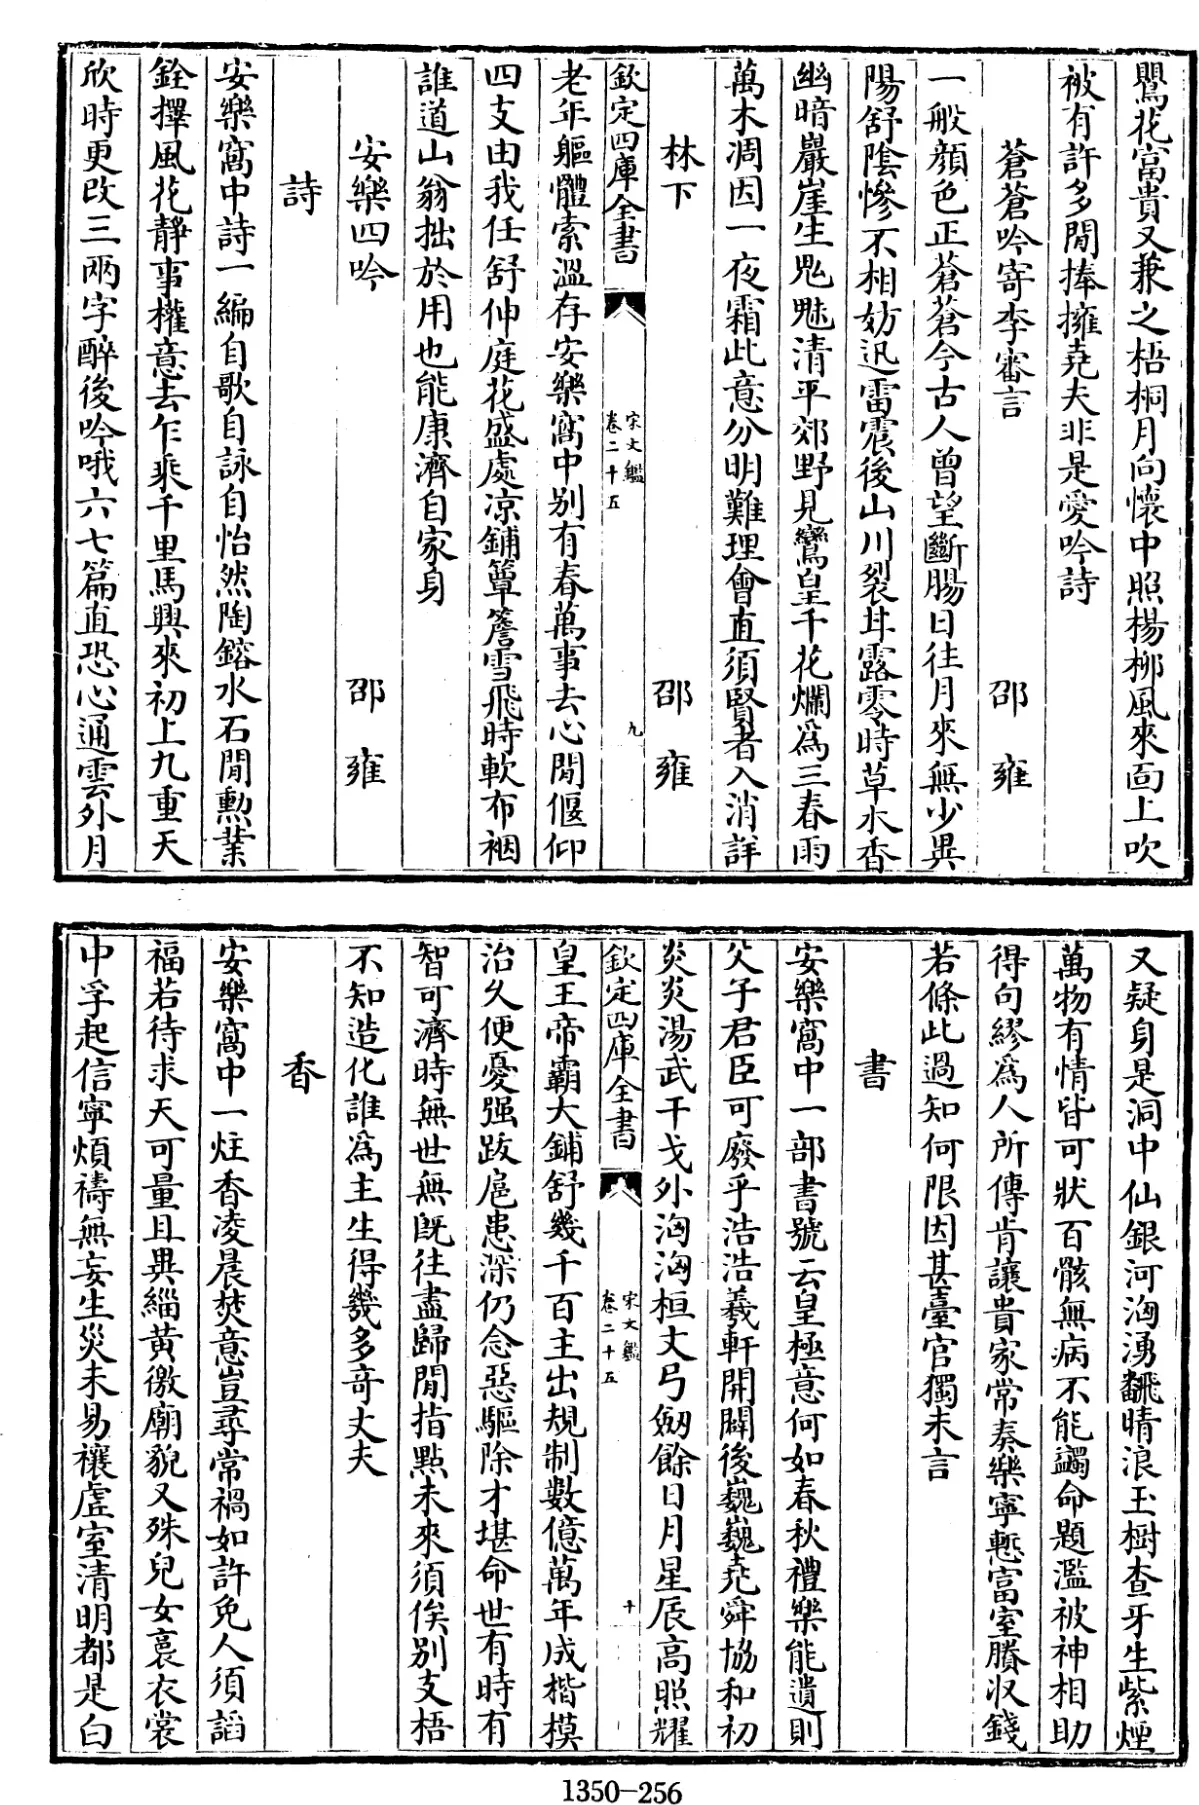 鸎花富貴又兼之梧桐月向懷中照楊柳風來面上吹
被有許多閒捧擁堯夫非是愛吟詩
蒼蒼吟寄李審言 邵雍
一般顏色正蒼蒼今古人曾望斷腸日往月來無少異
陽舒陰慘不相妨迅雷震後山川裂甘露零時草木香
幽暗巖崖生鬼魅清平郊野見鸞皇千花爛為三春雨
萬木凋因一夜霜此意分明難理會直須賢者入消詳
林下 邵雍
欽定四庫全書 宋文鑑 卷二十五 九
老年軀體索溫存安樂窩中別有春萬事去心閒偃仰
四支由我任舒伸庭花盛處凉鋪簟簷雪飛時軟布裀
誰道山翁拙於用也能康濟自家身
安樂四吟 邵雍
詩
安樂窩中詩一編自歌自詠自怡然陶鎔水石閒勲業
銓擇風花靜事權意去乍乘千里馬興來初上九重天
欣時更改三兩字醉後吟哦六七篇直恐心通雲外月
又疑身是洞中仙銀河洶湧飜晴浪玉樹查牙生紫煙
萬物有情皆可狀百骸無病不能蠲命題濫被神相助
得句繆為人所傳肯讓貴家常奏樂寧慙富室賸収錢
若條此過知何限因甚臺官獨未言
書
安樂窩中一部書號云皇極意何如春秋禮樂能遺則
父子君臣可廢乎浩浩羲軒開闢後巍巍堯舜協和初
炎炎湯武干戈外洶洶桓文弓劒餘日月星辰高照耀
欽定四庫全書 宋文鑑 卷二十五 十
皇王帝霸大鋪舒幾千百主出規制數億萬年成楷模
治久便憂强跋扈患深仍念惡驅除才堪命世有時有
智可濟時無世無既往盡歸閒指點未來須俟別支梧
不知造化誰為主生得幾多奇丈夫
香
安樂窩中一炷香凌晨焚意豈尋常禍如許免人須諂
福若待求天可量且異緇黄徼廟貌又殊兒女裛衣裳
中孚起信寧煩禱無妄生災未易禳虛室清明都是白
1350-256